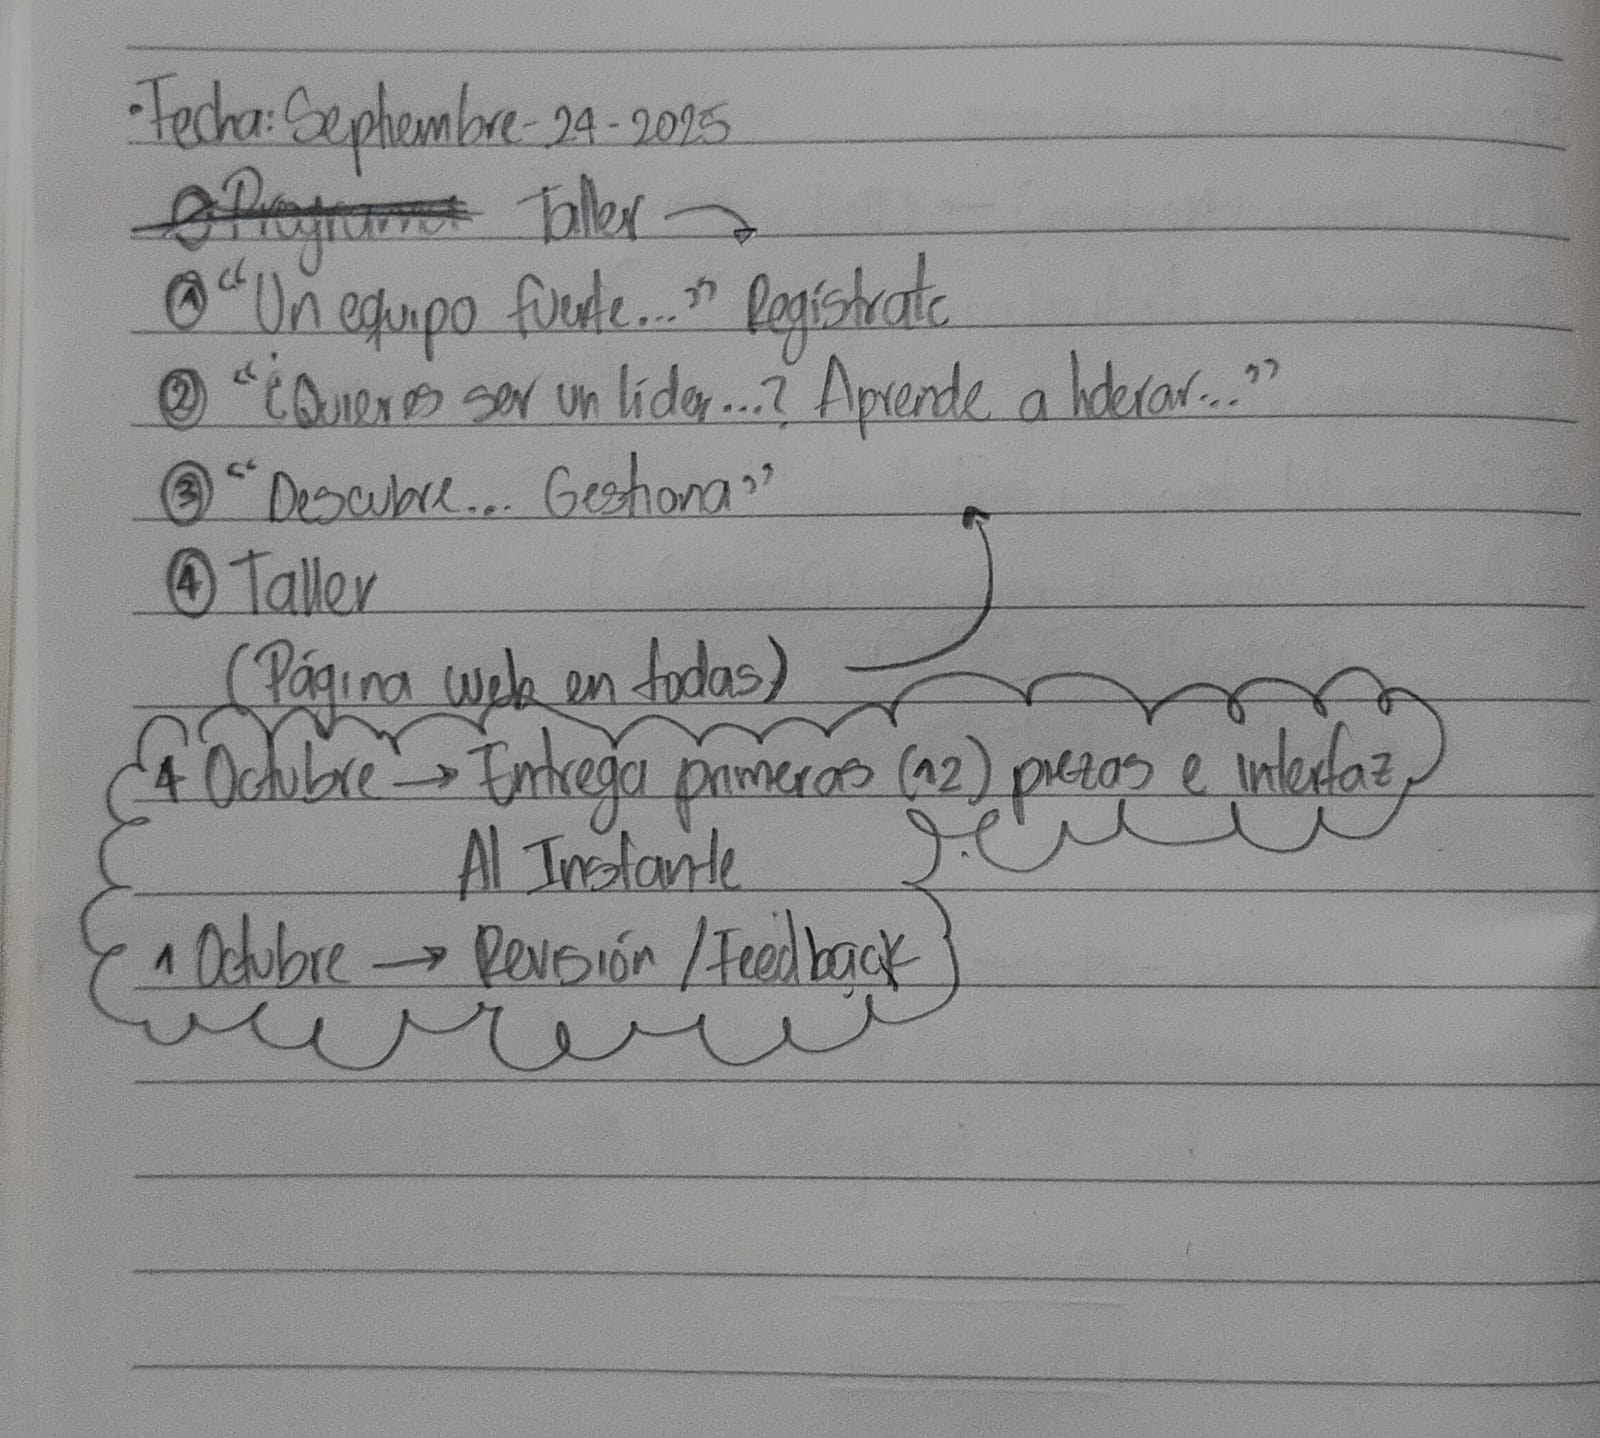 ·Fecha: Septiembre-24-2025
Programa Taller →
① "Un equipo fuerte..." Regístrate
② "¿Quieres ser un líder...? Aprende a liderar..."
③ "Descubre... Gestiona"
④ Taller
(Página web en todas)
4 Octubre → Entrega primeras (12) piezas e interfaz
Al Instante
1 Octubre → Revisión / Feedback